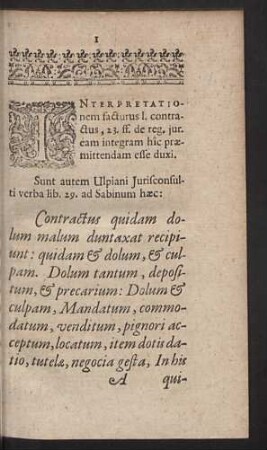 1
INTERPRETATIO-
nem facturus l. contra-
ctus, 23. ff. de reg. jur.
eam integram hic præ-
mittendam esse duxi.
Sunt autem Ulpiani Jurisconsul-
ti verba lib. 29. ad Sabinum hæc:
Contractus quidam do-
lum malum duntaxat recipi-
unt: quidam & dolum, & cul-
pam. Dolum tantum, deposi-
tum, & precarium: Dolum &
culpam, Mandatum, commo-
datum, venditum, pignori ac-
ceptum, locatum, item dotis da-
tio, tutelæ, negocia gesta, In his
A qui-